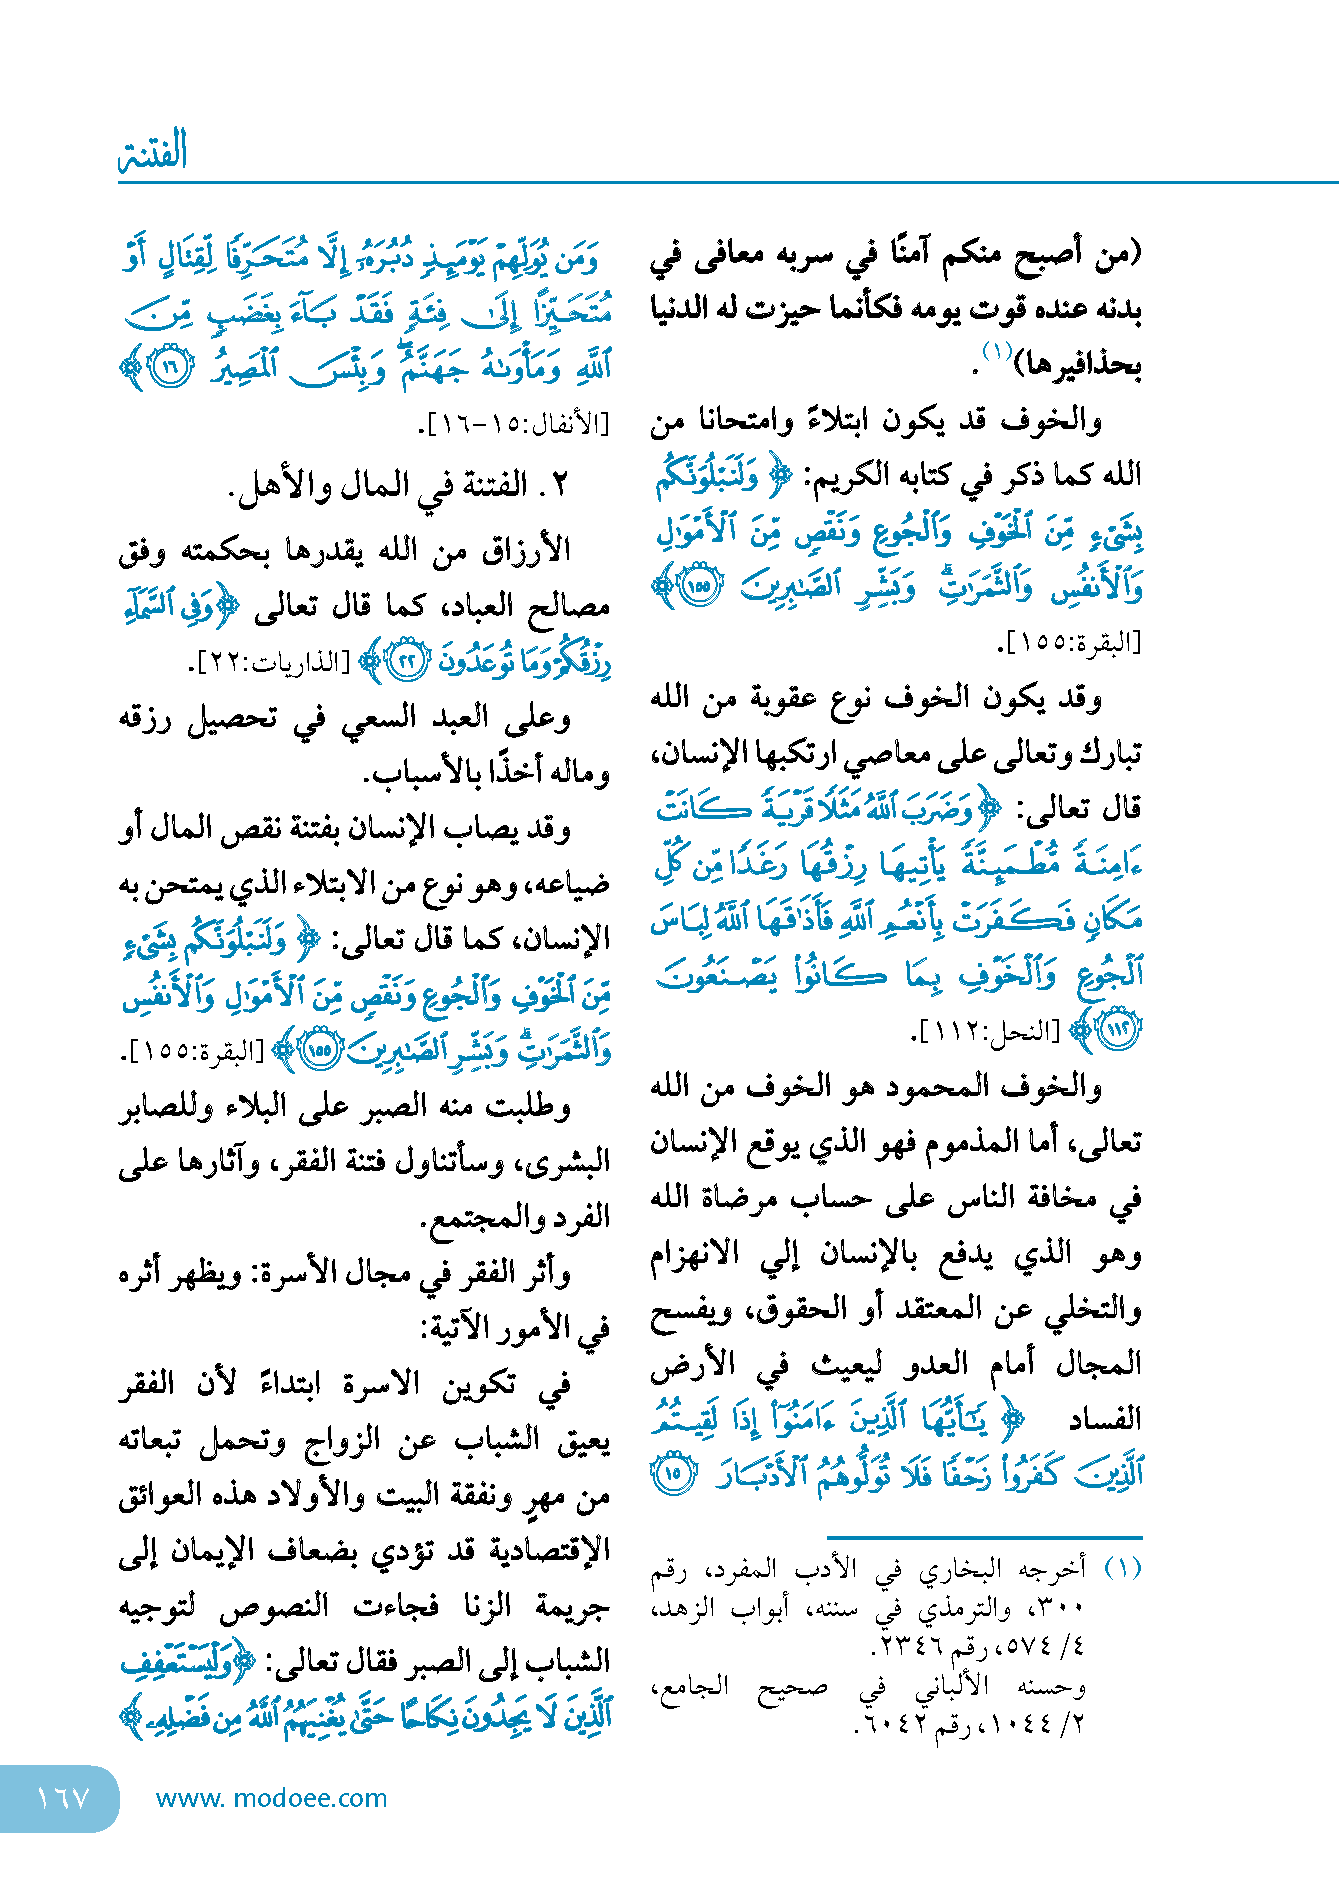 الفتنة
(من أصبح منكم آمنًا في سربه معافى في
بدنه عنده قوت يومه فكأنما حيزت له الدنيا
بحذافيرها)(١).
والخوف قد يكون ابتلاءً وامتحانا من
الله كما ذكر في كتابه الكريم: ﴿وَلَنَبْلُوَنَّكُم
بِشَىْءٍ مِّنَ ٱلْخَوْفِ وَٱلْجُوعِ وَنَقْصٍ مِّنَ ٱلْأَمْوَٰلِ
وَٱلْأَنفُسِ وَٱلثَّمَرَٰتِ ۗ وَبَشِّرِ ٱلصَّٰبِرِينَ ١٥٥﴾
[البقرة:١٥٥].
وقد يكون الخوف نوع عقوبة من الله
تبارك وتعالى على معاصي ارتكبها الإنسان،
قال تعالى: ﴿وَضَرَبَ ٱللَّهُ مَثَلًا قَرْيَةً كَانَتْ
ءَامِنَةً مُّطْمَئِنَّةً يَأْتِيهَا رِزْقُهَا رَغَدًا مِّن كُلِّ
مَكَانٍ فَكَفَرَتْ بِأَنْعُمِ ٱللَّهِ فَأَذَٰقَهَا ٱللَّهُ لِبَاسَ
ٱلْجُوعِ وَٱلْخَوْفِ بِمَا كَانُوا۟ يَصْنَعُونَ
١١٢﴾ [النحل:١١٢].
والخوف المحمود هو الخوف من الله
تعالى، أما المذموم فهو الذي يوقع الإنسان
في مخافة الناس على حساب مرضاة الله
وهو الذي يدفع بالإنسان إلي الانهزام
والتخلي عن المعتقد أو الحقوق، ويفسح
المجال أمام العدو ليعيث في الأرض
الفساد ﴿يَٰٓأَيُّهَا ٱلَّذِينَ ءَامَنُوٓا۟ إِذَا لَقِيتُمُ
ٱلَّذِينَ كَفَرُوا۟ زَحْفًا فَلَا تُوَلُّوهُمُ ٱلْأَدْبَارَ ١٥
(١) أخرجه البخاري في الأدب المفرد، رقم
٣٠٠، والترمذي في سننه، أبواب الزهد،
٤/ ٥٧٤، رقم ٢٣٤٦.
وحسنه الألباني في صحيح الجامع،
٢/ ١٠٤٤، رقم ٦٠٤٢.
وَمَن يُوَلِّهِمْ يَوْمَئِذٍ دُبُرَهُۥٓ إِلَّا مُتَحَرِّفًا لِّقِتَالٍ أَوْ
مُتَحَيِّزًا إِلَىٰ فِئَةٍ فَقَدْ بَآءَ بِغَضَبٍ مِّنَ
ٱللَّهِ وَمَأْوَىٰهُ جَهَنَّمُ ۖ وَبِئْسَ ٱلْمَصِيرُ ١٦﴾
[الأنفال:١٥-١٦].
٢. الفتنة في المال والأهل.
الأرزاق من الله يقدرها بحكمته وفق
مصالح العباد، كما قال تعالى ﴿وَفِى ٱلسَّمَآءِ
رِزْقُكُمْ وَمَا تُوعَدُونَ ٢٢﴾ [الذاريات:٢٢].
وعلى العبد السعي في تحصيل رزقه
وماله أخذًا بالأسباب.
وقد يصاب الإنسان بفتنة نقص المال أو
ضياعه، وهو نوع من الابتلاء الذي يمتحن به
الإنسان، كما قال تعالى: ﴿وَلَنَبْلُوَنَّكُم بِشَىْءٍ
مِّنَ ٱلْخَوْفِ وَٱلْجُوعِ وَنَقْصٍ مِّنَ ٱلْأَمْوَٰلِ وَٱلْأَنفُسِ
وَٱلثَّمَرَٰتِ ۗ وَبَشِّرِ ٱلصَّٰبِرِينَ ١٥٥﴾ [البقرة:١٥٥].
وطلبت منه الصبر على البلاء وللصابر
البشرى، وسأتناول فتنة الفقر، وآثارها على
الفرد والمجتمع.
وأثر الفقر في مجال الأسرة: ويظهر أثره
في الأمور الآتية:
في تكوين الاسرة ابتداءً لأن الفقر
يعيق الشباب عن الزواج وتحمل تبعاته
من مهرٍ ونفقة البيت والأولاد هذه العوائق
الإقتصادية قد تؤدي بضعاف الإيمان إلى
جريمة الزنا فجاءت النصوص لتوجيه
الشباب إلى الصبر فقال تعالى: ﴿وَلْيَسْتَعْفِفِ
ٱلَّذِينَ لَا يَجِدُونَ نِكَاحًا حَتَّىٰ يُغْنِيَهُمُ ٱللَّهُ مِن فَضْلِهِۦ﴾
www. modoee.com
١٦٧